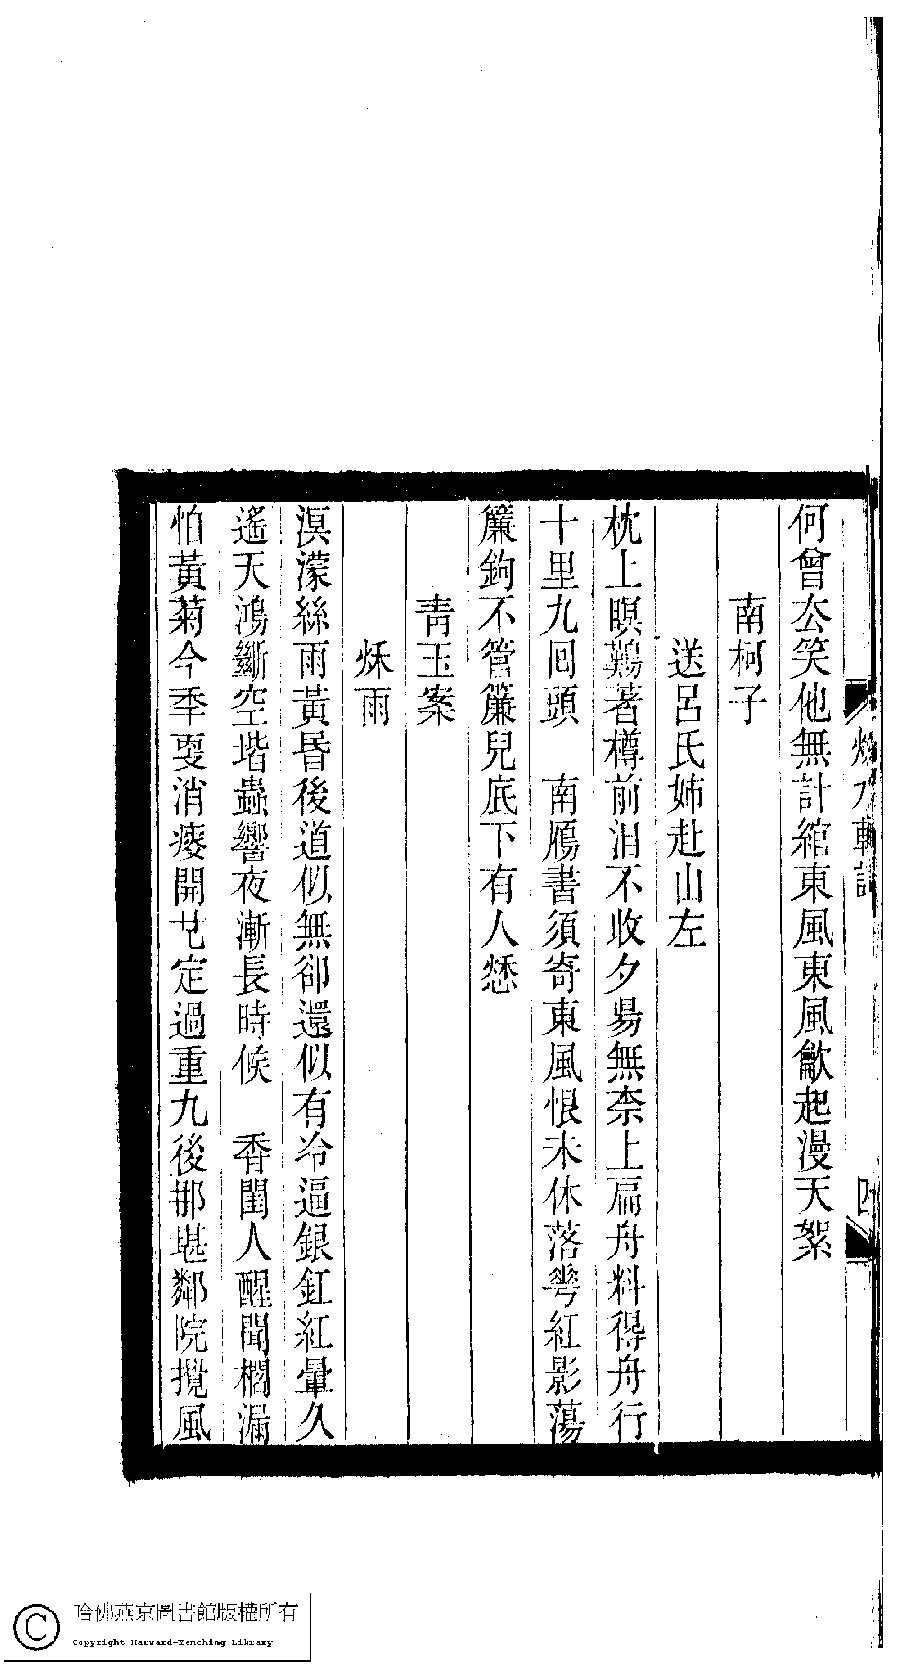 何曾厺笑他無計綰東風東風歗起漫天絮
南柯子
送呂氏姊赴山左
枕上瞑鷄著樽前泪不收夕昜無柰上扁舟料得舟行
十里九回頭　南鴈書須寄東風恨未休落蕚紅影蕩
簾鉤不管簾兒底下有人愁
青玉案
秌雨
溟濛絲雨黃昬後道似無卻還似有冷逼銀釭紅暈久
遙天鴻斷空堦蟲響夜漸長時候　香閨人醒聞櫚漏
怕黃菊今秊耎消瘦開也定過重九後那堪鄰院攪風
四
哈佛燕京圖書館版權所有
Copyright Harvard-Yenching Library